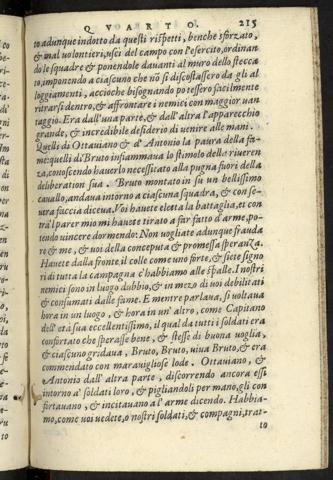 QVARTO. 215
to adunque indotto da questi rispetti, benche sforzato,
& mal volontieri, uscì del campo con l'esercito, ordinan
do le squadre & ponendole dauanti al muro dello stecca
to, imponendo a ciascuno che nō si discostassero da gli al
loggiamenti, accioche bisognando potessero facilmente
ritrarsi dentro, & affrontare i nemici con maggior uan
taggio. Era dall'una parte, & dall'altra l'apparecchio
grande, & incredibile desiderio di uenire alle mani.
Quelli di Ottauiano & d'Antonio la paura della fa-
me: quelli di Bruto infiammaua lo stimolo della riueren
za, conoscendo hauerlo necessitato alla pugna fuori della
deliberation sua. Bruto montato in su un bellissimo
cauallo, andaua intorno a ciascuna squadra, & con se-
uera faccia diceua. Voi hauete eletta la battaglia, et con
tra'l parer mio mi hauete tirato a far fatto d'arme, po-
tendo uincere dormendo: Non uogliate adunque frauda
re & me, & uoi della conceputa & promessa speranza.
Hauete dalla fronte il colle come uno forte, & siete signo
ri di tutta la campagna c'habbiamo alle spalle. I nostri
nemici sono in luogo dubbio, & in mezo di uoi debilitati
& consumati dalle fame. E mentre parlaua, si uoltaua
hora in un luogo, & hora in un'altro, come Capitano
dell'età sua eccellentissimo, il qual da tutti i soldati era
confortato che sperasse bene, & stesse di buona uoglia,
& ciascuno gridaua, Bruto, Bruto, uiua Bruto, & era
commendato con marauigliose lode. Ottauiano, &
Antonio dall'altra parte, discorrendo ancora essi
intorno a' soldati loro, & pigliandoli per mano, gli con
fortauano, & incitauano a l'arme dicendo. Habbia-
mo, come uoi uedete, o nostri soldati, & compagni, trat-
to